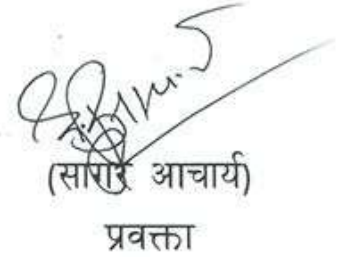 (सागर आचार्य)
प्रवक्ता